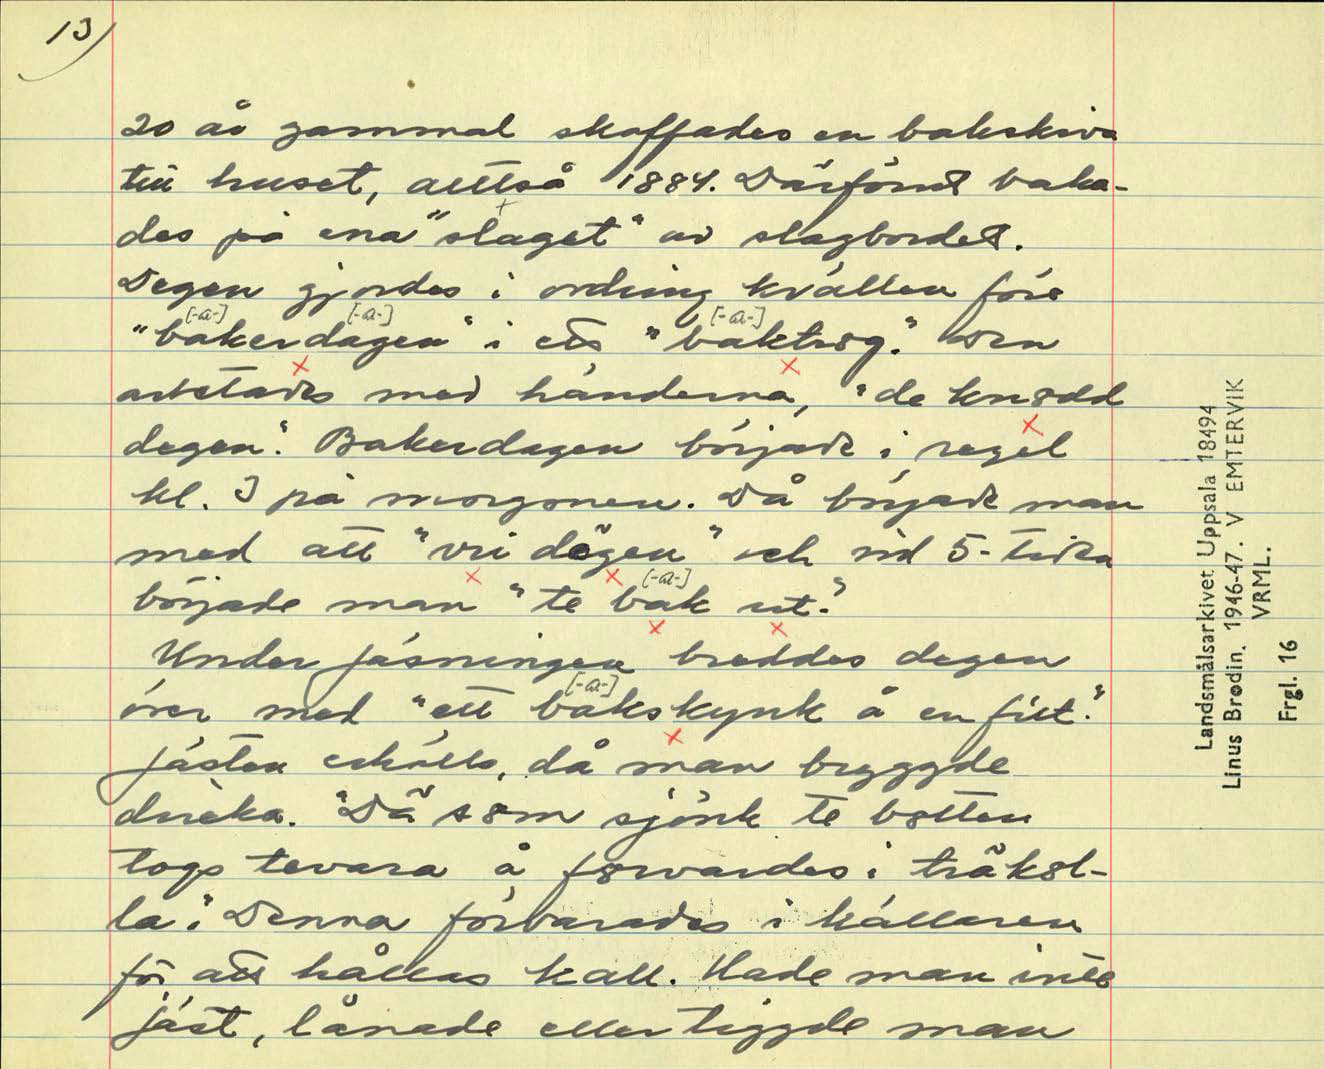 13)
20 år gammal skaffades en bakskiva
till huset, alltså 1884. Därförut baka-
des på ena "slaget" av slagbordet.
Degen gjordes i ordning kvällen före
[-a-] [-a-] [-a-]
"bakerdagen" i ett "baktrog". Den
arbetades med händerna, "de knodd
degen". Bakerdagen började i regel
kl. 3 på morgonen. Då började man
med att "vri dögen" och vid 5-tiden
[-a-]
började man "te bak ut".
Under jäsningen breddes degen
[-a-]
över med "ett bakskynk å en filt".
Jästen erhölls, då man bryggde
dricka. "Dä som sjönk te botten
togs tevara å förvardes i träkol-
la". Denna förvarades i källaren
för att hållas kall. Hade man inte
jäst, lånade eller tiggde man
Landsmålsarkivet Uppsala 18494
Linus Brodin. 1946-47. V EMTERVIK
VRML.
Frgl. 16